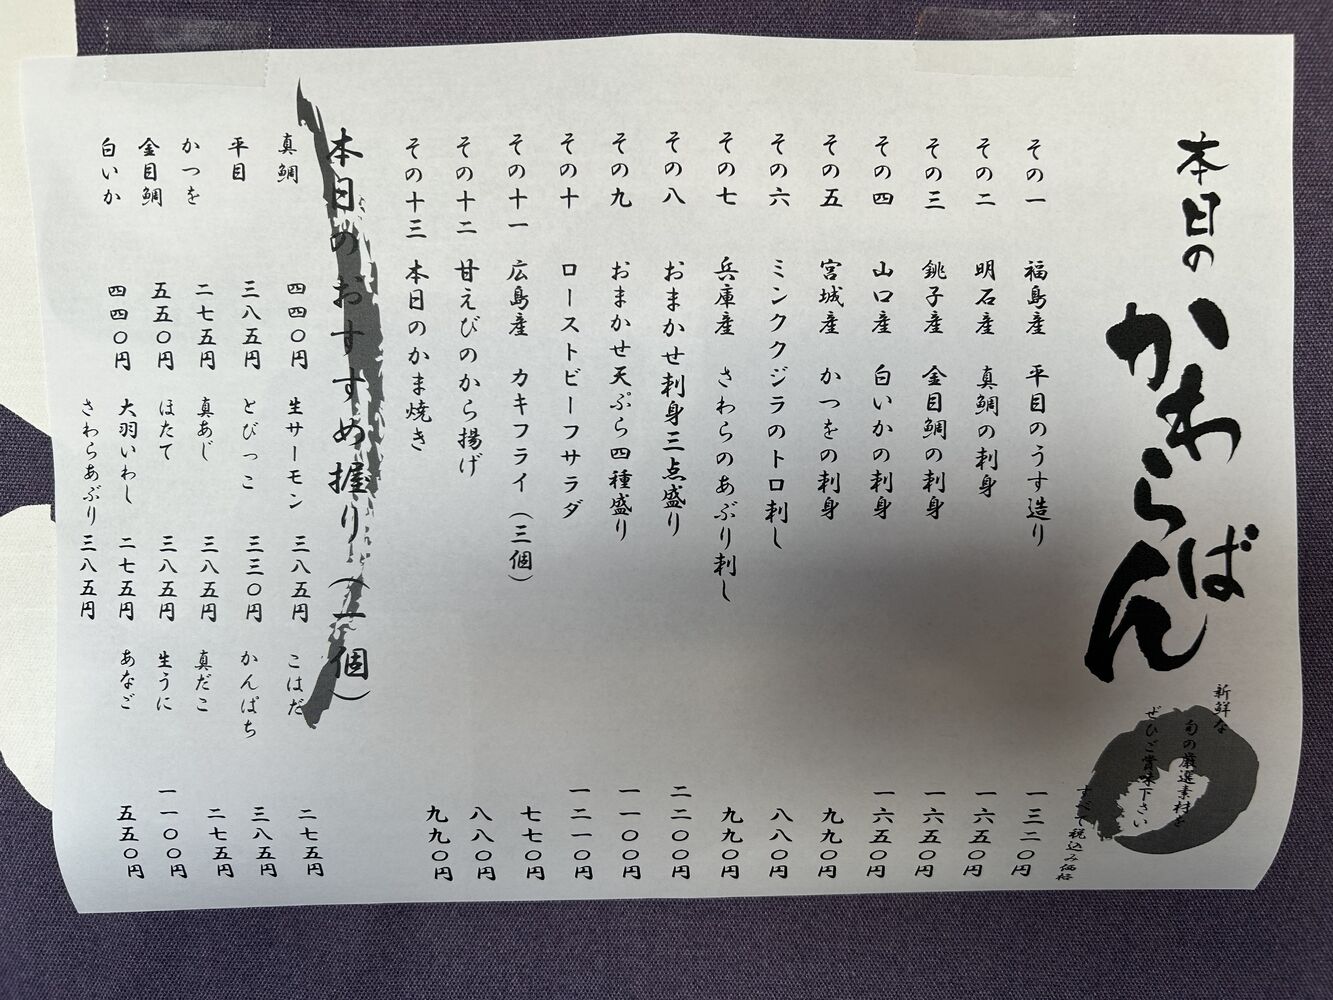 本日のかわらばん
新鮮な
旬の厳選素材を
ぜひご賞味下さい
すべて税込み価格
その一 福島産 平目のうす造り 一三二〇円
その二 明石産 真鯛の刺身 一六五〇円
その三 銚子産 金目鯛の刺身 一六五〇円
その四 山口産 白いかの刺身 一六五〇円
その五 宮城産 かつをの刺身 九九〇円
その六 ミンククジラのトロ刺し 八八〇円
その七 兵庫産 さわらのあぶり刺し 九九〇円
その八 おまかせ刺身三点盛り 二二〇〇円
その九 おまかせ天ぷら四種盛り 一一〇〇円
その十 ローストビーフサラダ 一二一〇円
その十一 広島産 カキフライ(三個) 七七〇円
その十二 甘えびのから揚げ 八八〇円
その十三 本日のかま焼き 九九〇円
本日のおすすめ握り(一個)
真鯛 四四〇円 生サーモン 三八五円 こはだ 二七五円
平目 三八五円 とびっこ 三三〇円 かんぱち 三八五円
かつを 二七五円 真あじ 三八五円 真だこ 二七五円
金目鯛 五五〇円 ほたて 三八五円 生うに 一一〇〇円
白いか 四四〇円 大羽いわし 二七五円 あなご 五五〇円
さわらあぶり 三八五円